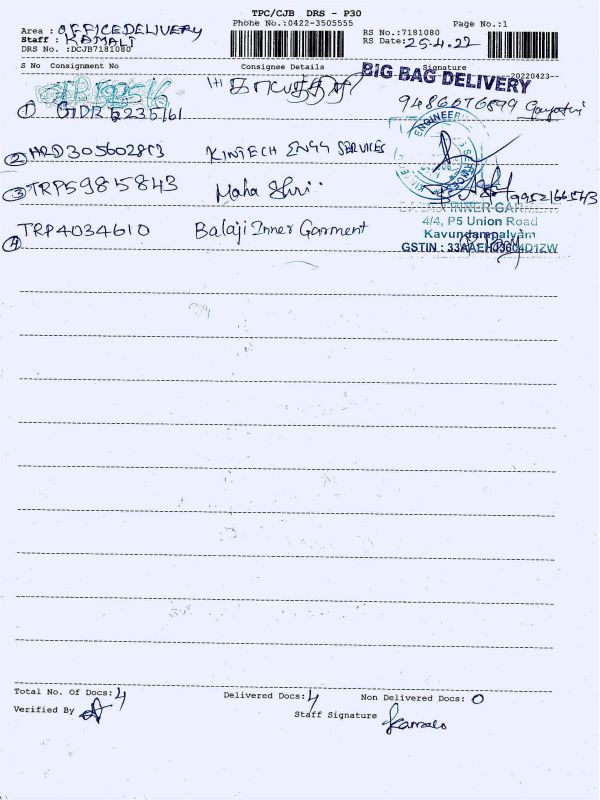 TPC/CJB DRS - P30
Phone No.:0422-3505555
Page No.:1
Area : OFFICE DELIVERY
Staff : KAMALI
DRS No. :DCJB7181080
RS No.:7181080
RS Date:25.4.22
S No Consignment No Consignee Details Signature
--20220423--
BIG BAG DELIVERY
9486076899
1
2 HRD305602803 KINTECH ENGG SERVICES
ENGINEER
3 TRP59815843 Maha Shri
9952166543
BALAJI INNER GARMENT
4 TRP4034610 Balaji Inner Garment
4/4, P5 Union Road
Kavundampalyam
GSTIN : 33AAEHJ3604D1ZW
Total No. Of Docs: 4 Delivered Docs: 4 Non Delivered Docs: 0
Verified By
Staff Signature Kamali